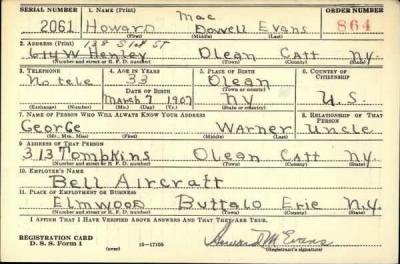 SERIAL NUMBER 1. NAME (Print) ORDER NUMBER
Mac
2061 Howard Dowell Evans 864
(First) (Middle) (Last)
2. ADDRESS (Print) 138 S 1st ST
614 W Henley Olean Catt N.Y.
(Number and street or R. F. D. number) (Town) (County) (State)
3. TELEPHONE 4. AGE IN YEARS 5. PLACE OF BIRTH 6. COUNTRY OF CITIZENSHIP
No tele 33 Olean
DATE OF BIRTH (Town or county)
March 7 1907 NY U.S.
(Exchange) (Number) (Mo.) (Day) (Yr.) (State or country)
7. NAME OF PERSON WHO WILL ALWAYS KNOW YOUR ADDRESS 8. RELATIONSHIP OF THAT PERSON
George Warner Uncle
(Mr., Mrs., Miss) (First) (Middle) (Last)
9. ADDRESS OF THAT PERSON
313 Tompkins Olean Catt N.Y.
(Number and street or R. F. D. number) (Town) (County) (State)
10. EMPLOYER'S NAME
Bell Aircraft
11. PLACE OF EMPLOYMENT OR BUSINESS
Elmwood Buffalo Erie N.Y.
(Number and street or R. F. D. number) (Town) (County) (State)
I AFFIRM THAT I HAVE VERIFIED ABOVE ANSWERS AND THAT THEY ARE TRUE.
REGISTRATION CARD
D. S. S. Form 1 (over) 16-17105 Howard M Evans
(Registrant's signature)